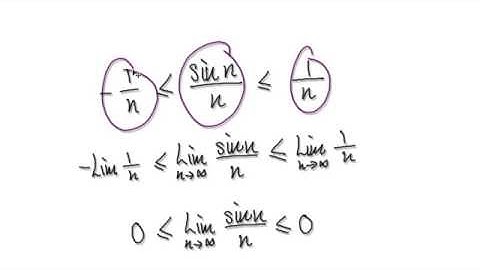 -1/n ≤ sin n/n ≤ 1/n
-Lim 1/n ≤ Lim n→∞ sin n/n ≤ Lim n→∞ 1/n
0 ≤ Lim n→∞ sin n/n ≤ 0